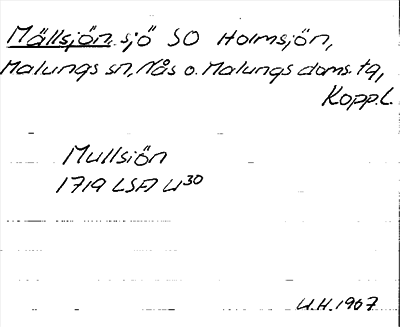 Mällsjön sjö SO Holmsjön,
Malungs sn, Nås o. Malungs doms. tg,
Kopp. l.
Mullsiön
1719 LSA U30
U.H. 1967